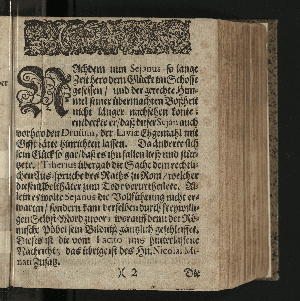 NAchdem nun Sejanus so lange
Zeit hero dem Glücke im Schosse
gesessen / und der gerechte Him-
mel seiner übermachten Boßheit
nicht länger nachsehen konte:
entdeckte er / daß dieser Sejan auch
vorhero den Drusum, der Laviæ Ehgemahl mit
Gifft hätte hinrichten lassen. Da änderte sich
sein Glück so gar / daß es ihn fallen ließ und stür-
tzete. Tiberius übergab die Sache dem rechtli-
chen Ausspruche des Raths zu Rom / welcher
diesen Ubelthäter zum Tod verurtheilete. Al-
lein es wolte Sejanus die Vollführung nicht er-
warten / sondern kam derselben durch freywilli-
gen Selbst-Mord zuvor; worauff denn der Rö-
mische Pöbel sein Bildniß gäntzlich geschleiffet.
Dieses ist die vom Facto uns hinterlassene
Nachricht; das übrige ist des Hn. Nicolai Mi-
nati Zusatz.
)( 2 Die